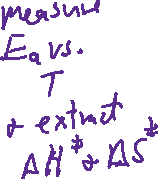 measure
Ea vs.
T
& extract
ΔH‡ & ΔS‡